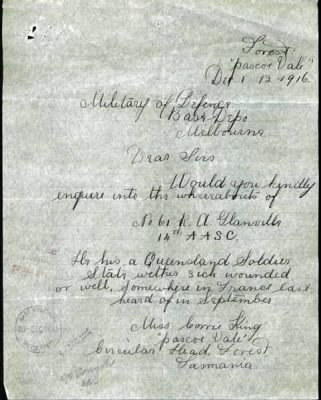 Forest
"pascoe Vale"
Dec 1-12-1916.
Military of Defence
Base Depo
Melbourne
Dear Sirs
Would you kindly
enquire into the whereabouts of
No 61 R. A Glanville
14th A.A.S.C.
He his a Queensland Soldier
State wether sick wounded
or well, Somewhere in France last
heard of in September
Miss Corrie King
"pascoe Vale"
Circular Head, Forest
Tasmania